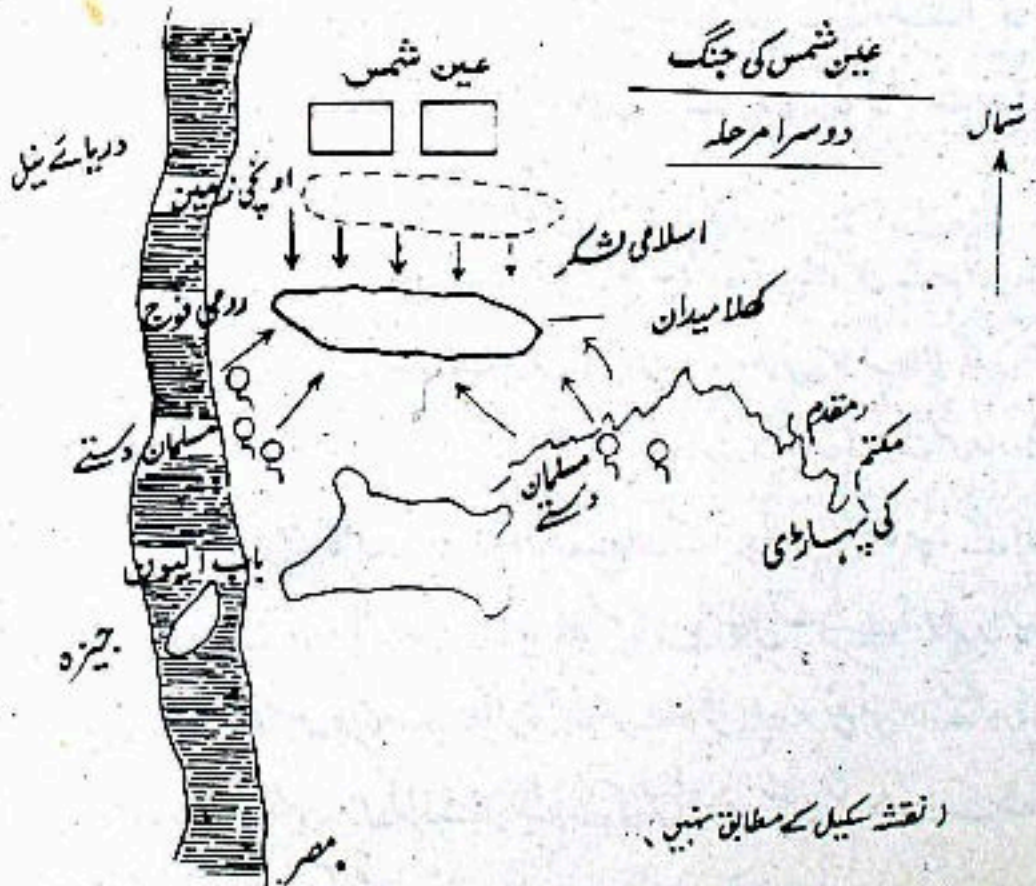 عین شمس کی جنگ
دوسرا مرحلہ
شمال
عین شمس
دریائے نیل
اونچی زمین
اسلامی لشکر
رومی فوج
کھلا میدان
مسلمان دستے
مسلمان
دستے
(مقدم
مکتم)
کی پہاڑی
باب الیون
جیزہ
مصر
(نقشہ سکیل کے مطابق نہیں)